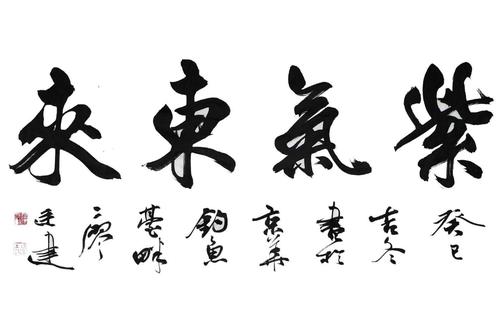 紫氣東來
癸巳吉冬書於京華釣魚臺畔